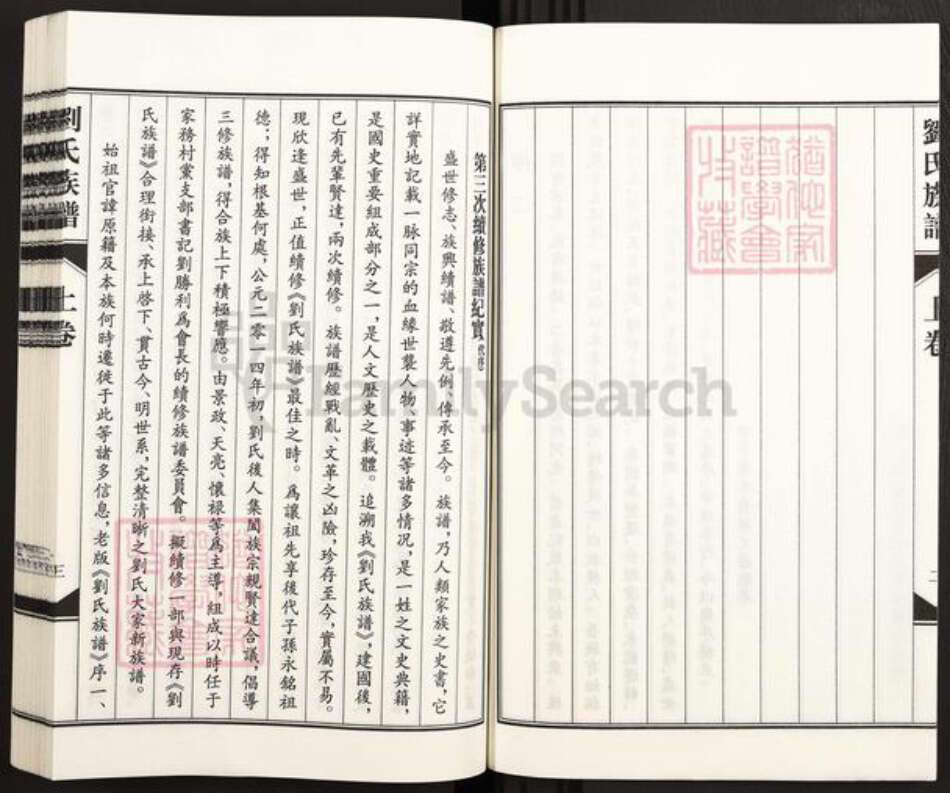 劉氏族譜
上卷
二
第三次續修族譜紀實 代序
盛世修志、族興續譜、敬遵先例，傳承至今。族譜，乃人類家族之史書，它
詳實地記載一脉同宗的血緣世襲人物事迹等諸多情况，是一姓之文史典籍，
是國史重要組成部分之一，是人文歷史之載體。追溯我《劉氏族譜》，建國後，
已有先輩賢達，兩次續修。族譜歷經戰亂、文革之凶險，珍存至今，實屬不易。
現欣逢盛世，正值續修《劉氏族譜》最佳之時。爲讓祖先享後代子孫永銘祖
德；得知根基何處，公元二零一四年初，劉氏後人集闔族宗親賢達合議，倡導
三修族譜，得合族上下積極響應。由景政、天亮、懷禄等爲主導，組成以時任于
家務村黨支部書記劉勝利爲會長的續修族譜委員會。擬續修一部與現存《劉
氏族譜》合理銜接、承上啓下、貫古今、明世系，完整清晰之劉氏大家新族譜。
始祖官諱原籍及本族何時遷徙于此等諸多信息，老版《劉氏族譜》序一、
劉氏族譜
上卷
三
FamilySearch